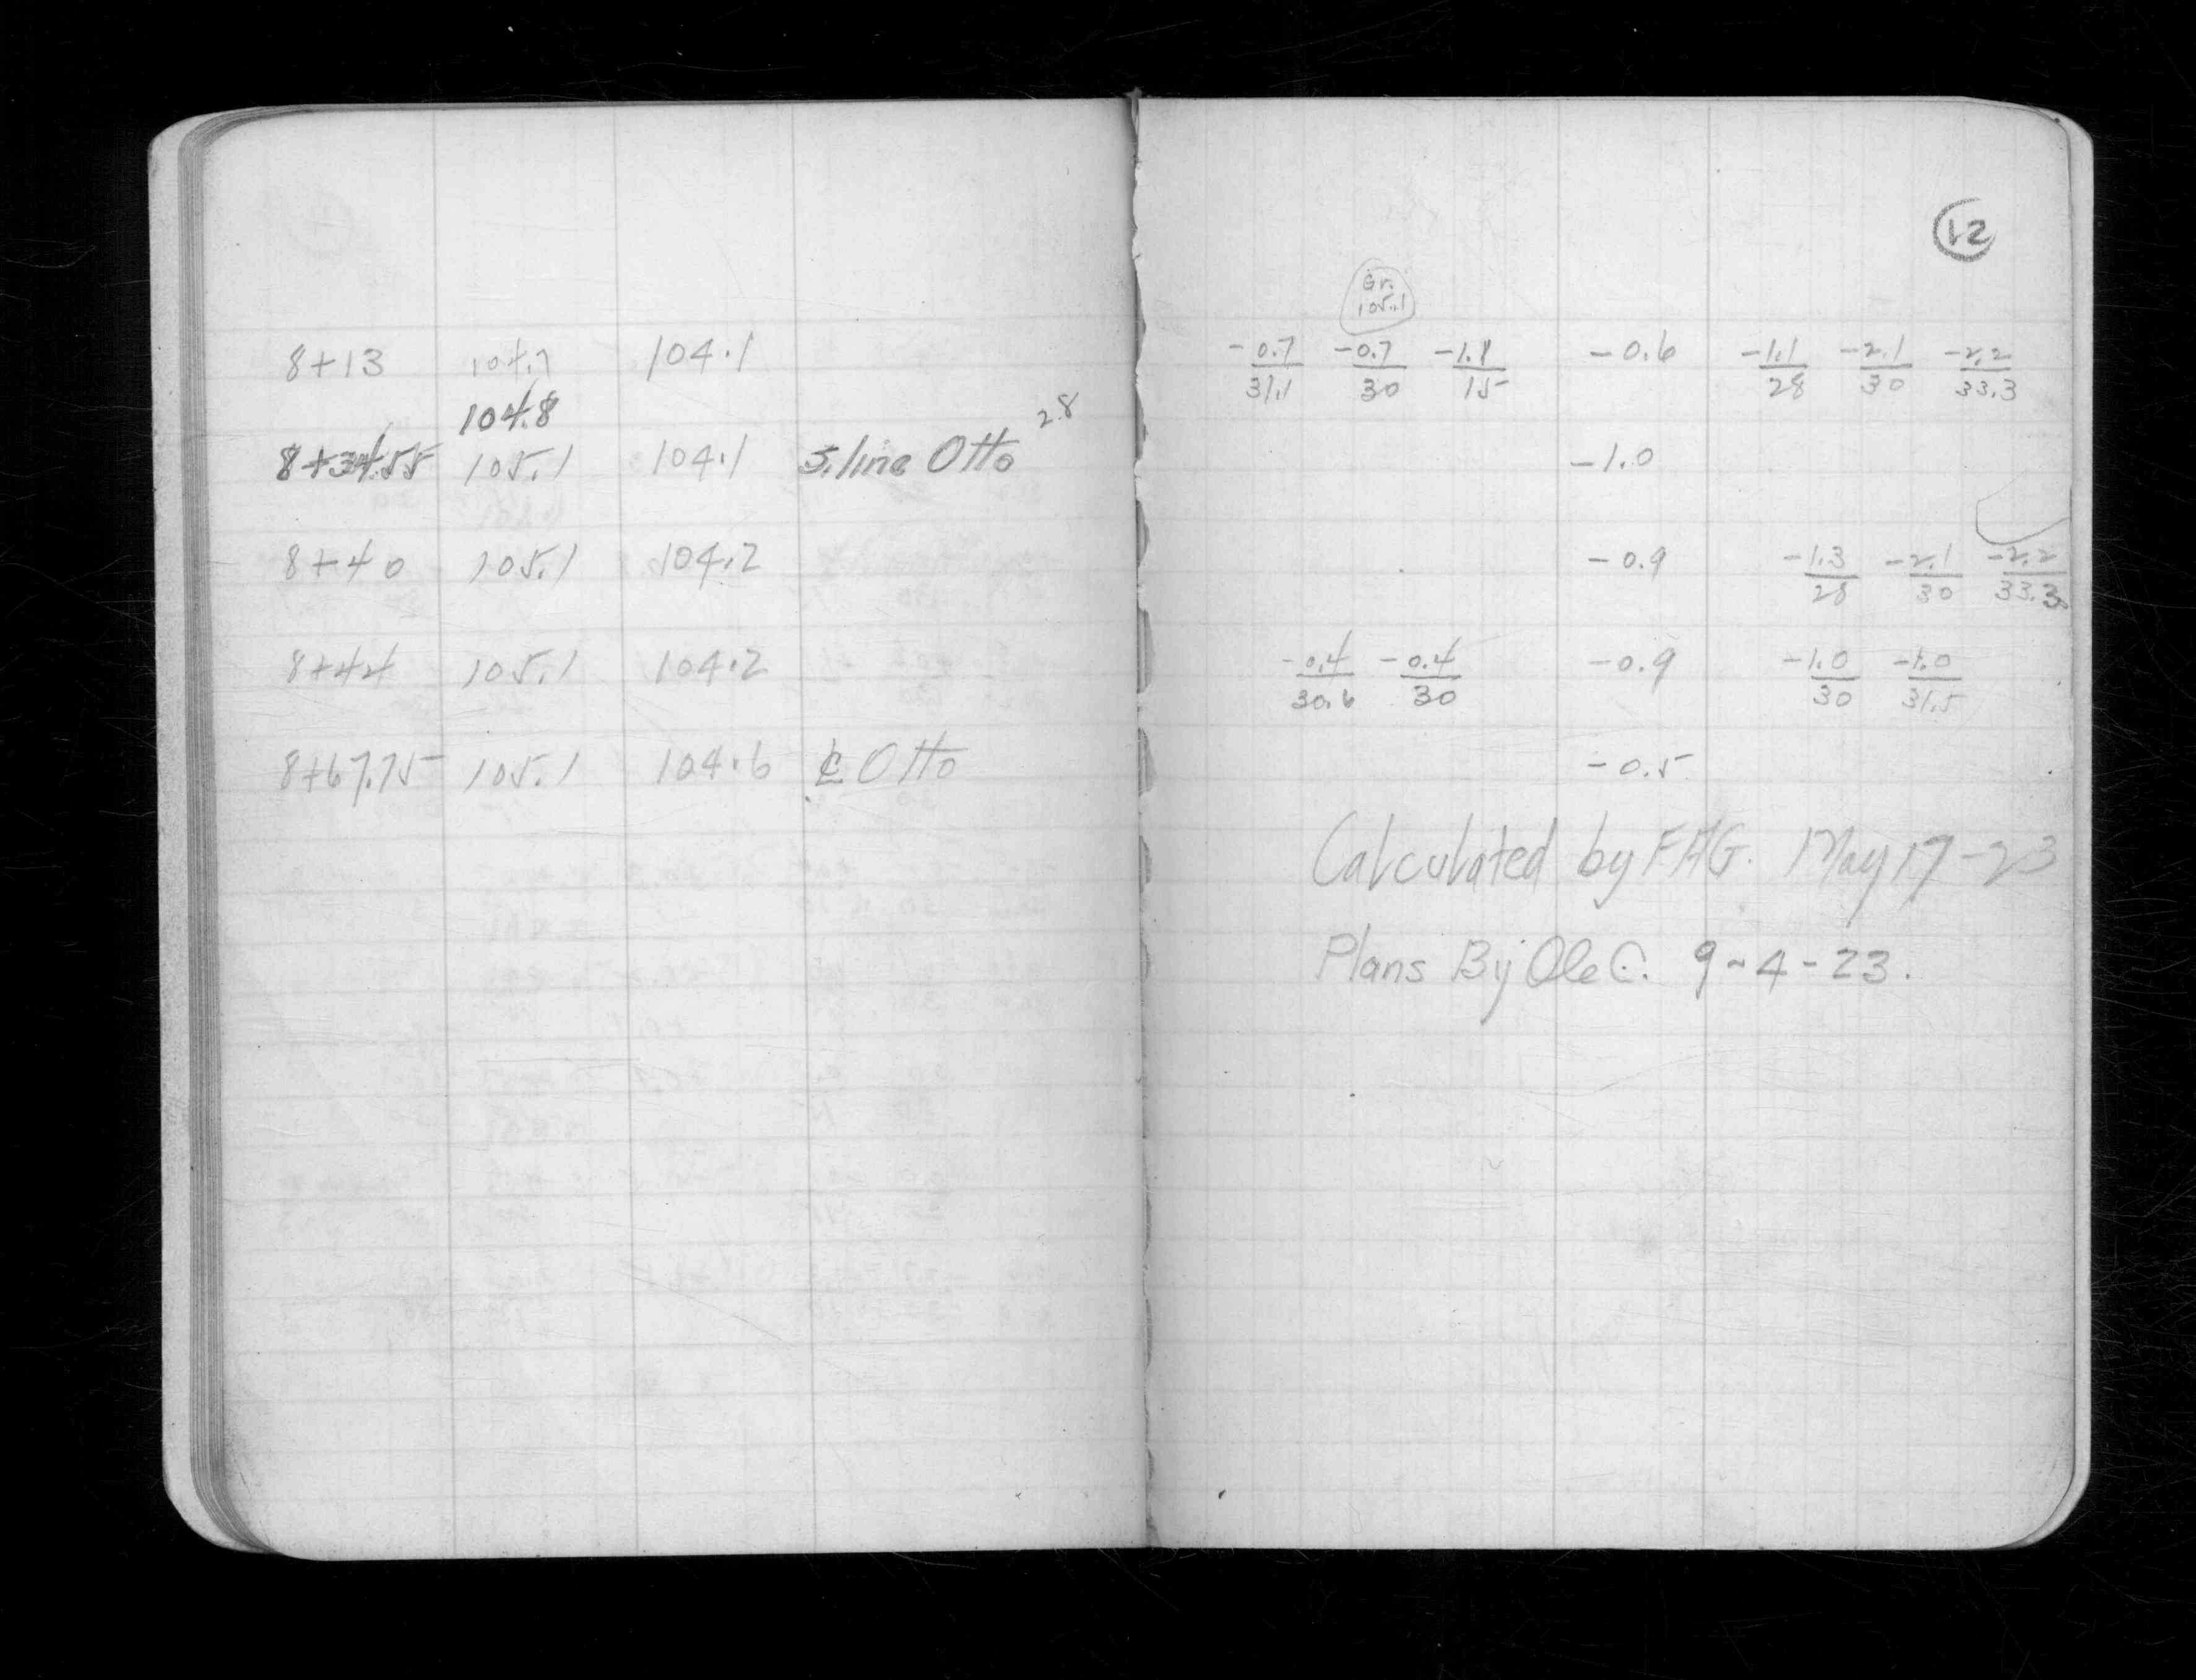 8+13 104.7 104.1
104.8
8+34.55 105.1 104.1 S. line Otto 2.8
8+40 105.1 104.2
8+44 105.1 104.2
8+67.75 105.1 104.6 ℄ Otto
12
Gr.
105.1
-0.7/31.1 -0.7/30 -1.1/15 -0.6 -1.1/28 -2.1/30 -2.2/33.3
-1.0
-0.9 -1.3/28 -2.1/30 -2.2/33.3
-0.4/30.6 -0.4/30 -0.9 -1.0/30 -1.0/31.5
-0.5
Calculated by FHG. May 17-23
Plans By Ole C. 9-4-23.